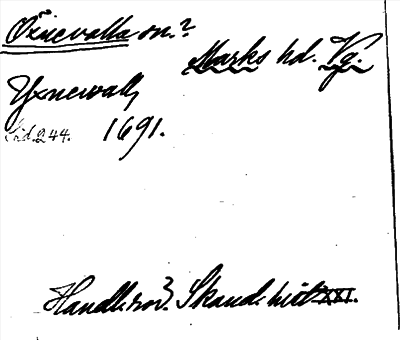 Öxnevalla sn.?
Marks hd. Vg.
Yxnewall,
Sid. 244. 1691.
Handl. rör. Skand. hist. XXI.